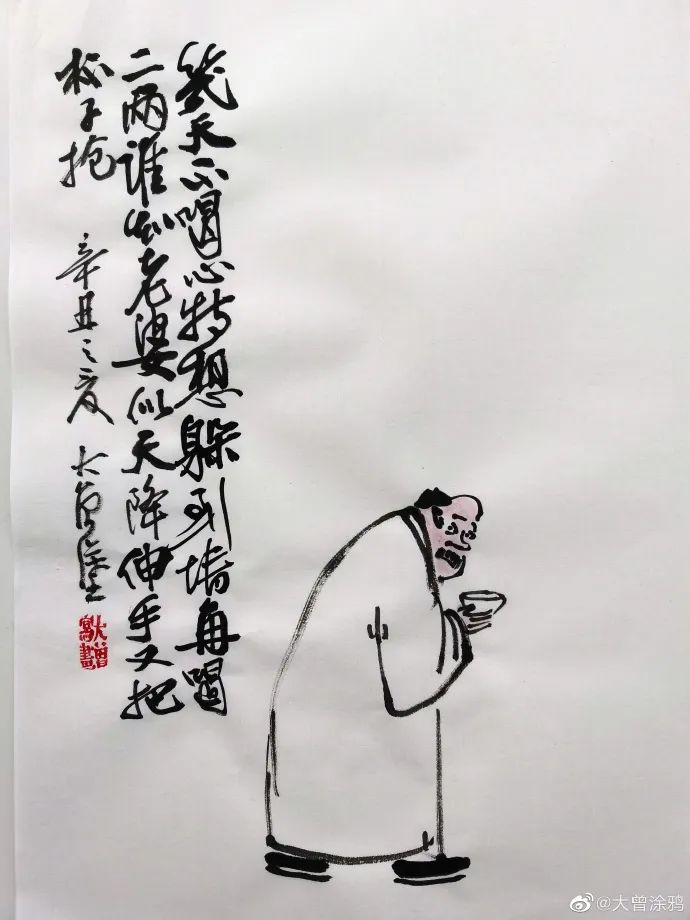 幾天不喝心特想躲到墙角喝
二两谁知老婆似天降伸手又把
杯子抢
辛丑之夏 大曾
@大曾涂鸦